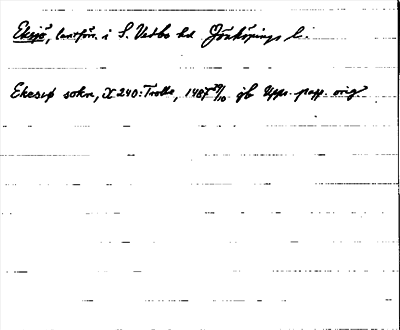 Eksjö, landsförs. i S. Vedbo hd Jönköpings l.
Ekesiø sokn, X 240: Trolle, 1487 29/10 jb Upps. papp. orig